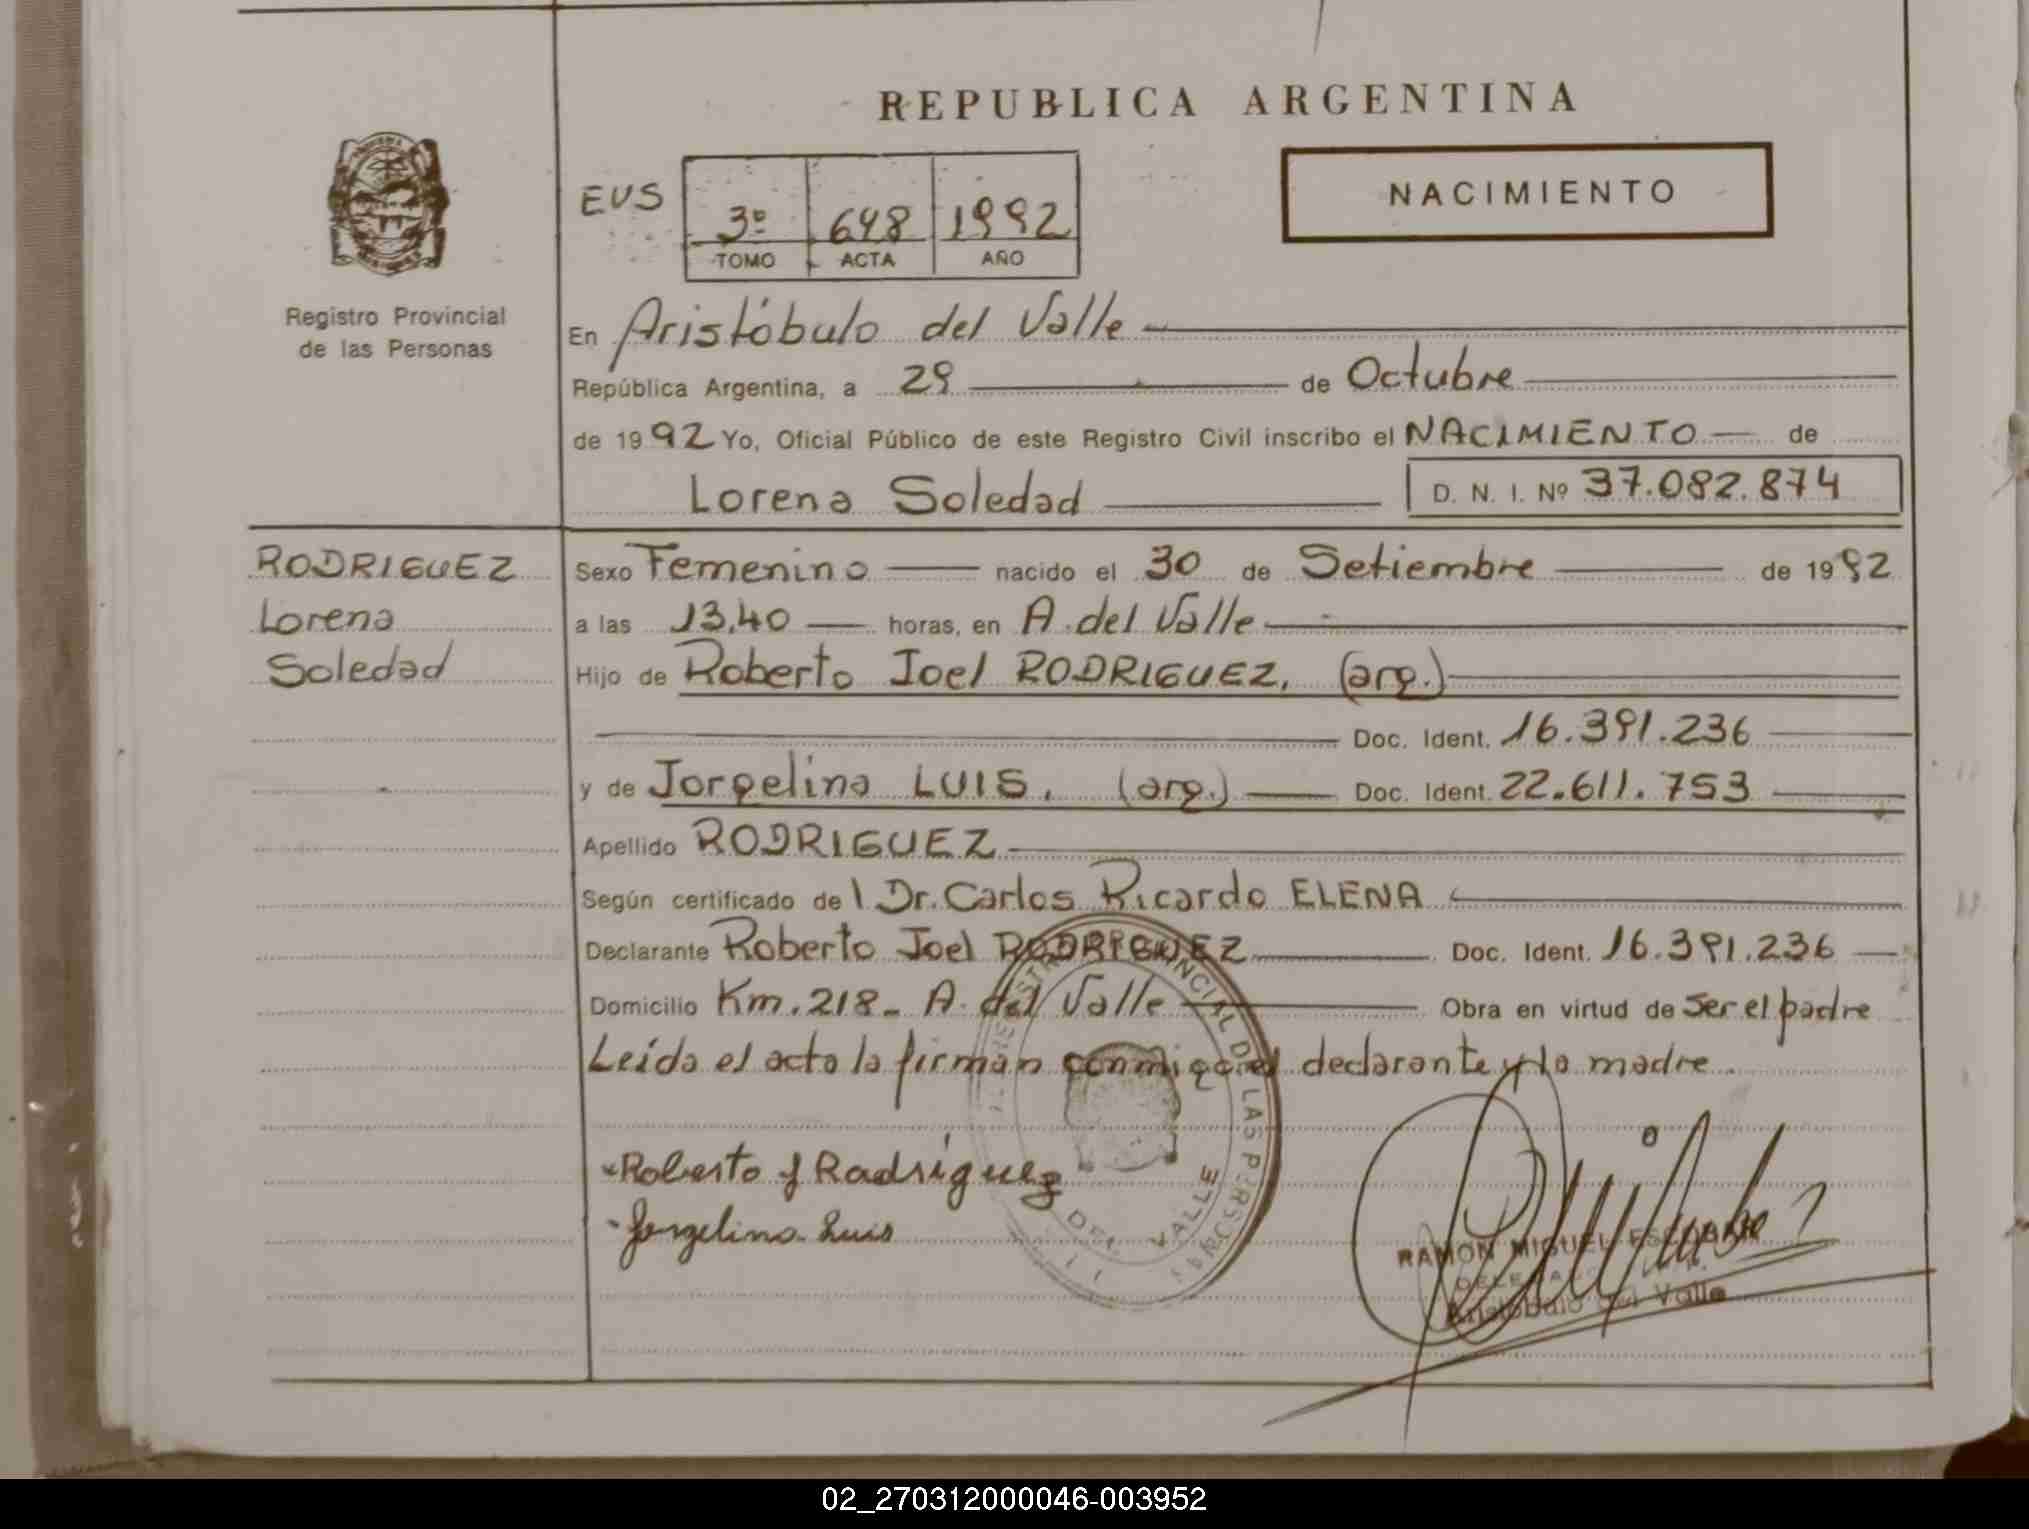 REPUBLICA ARGENTINA
NACIMIENTO
EUS
3º 648 1992
TOMO ACTA AÑO
Registro Provincial
de las Personas
En Aristóbulo del Valle
República Argentina, a 29 de Octubre
de 1992 Yo, Oficial Público de este Registro Civil inscribo el NACIMIENTO de
Lorena Soledad D. N. I. Nº 37.082.874
RODRIGUEZ
Lorena
Soledad
Sexo Femenino nacido el 30 de Setiembre de 1992
a las 13,40 horas, en A. del Valle
Hijo de Roberto Joel RODRIGUEZ, (arg.)
Doc. Ident. 16.391.236
y de Jorgelina LUIS, (arg.) Doc. Ident. 22.611.753
Apellido RODRIGUEZ
Según certificado del Dr. Carlos Ricardo ELENA
Declarante Roberto Joel RODRIGUEZ Doc. Ident. 16.391.236
Domicilio Km. 218- A. del Valle Obra en virtud de ser el padre
Leída el acta la firman conmigo el declarante y la madre.
Roberto J Rodríguez
Jorgelina Luis
PROVINCIAL DE LAS PERSONAS
DEL VALLE
RAMON MIGUEL ESCOBAR
Aristóbulo del Valle
02_270312000046-003952